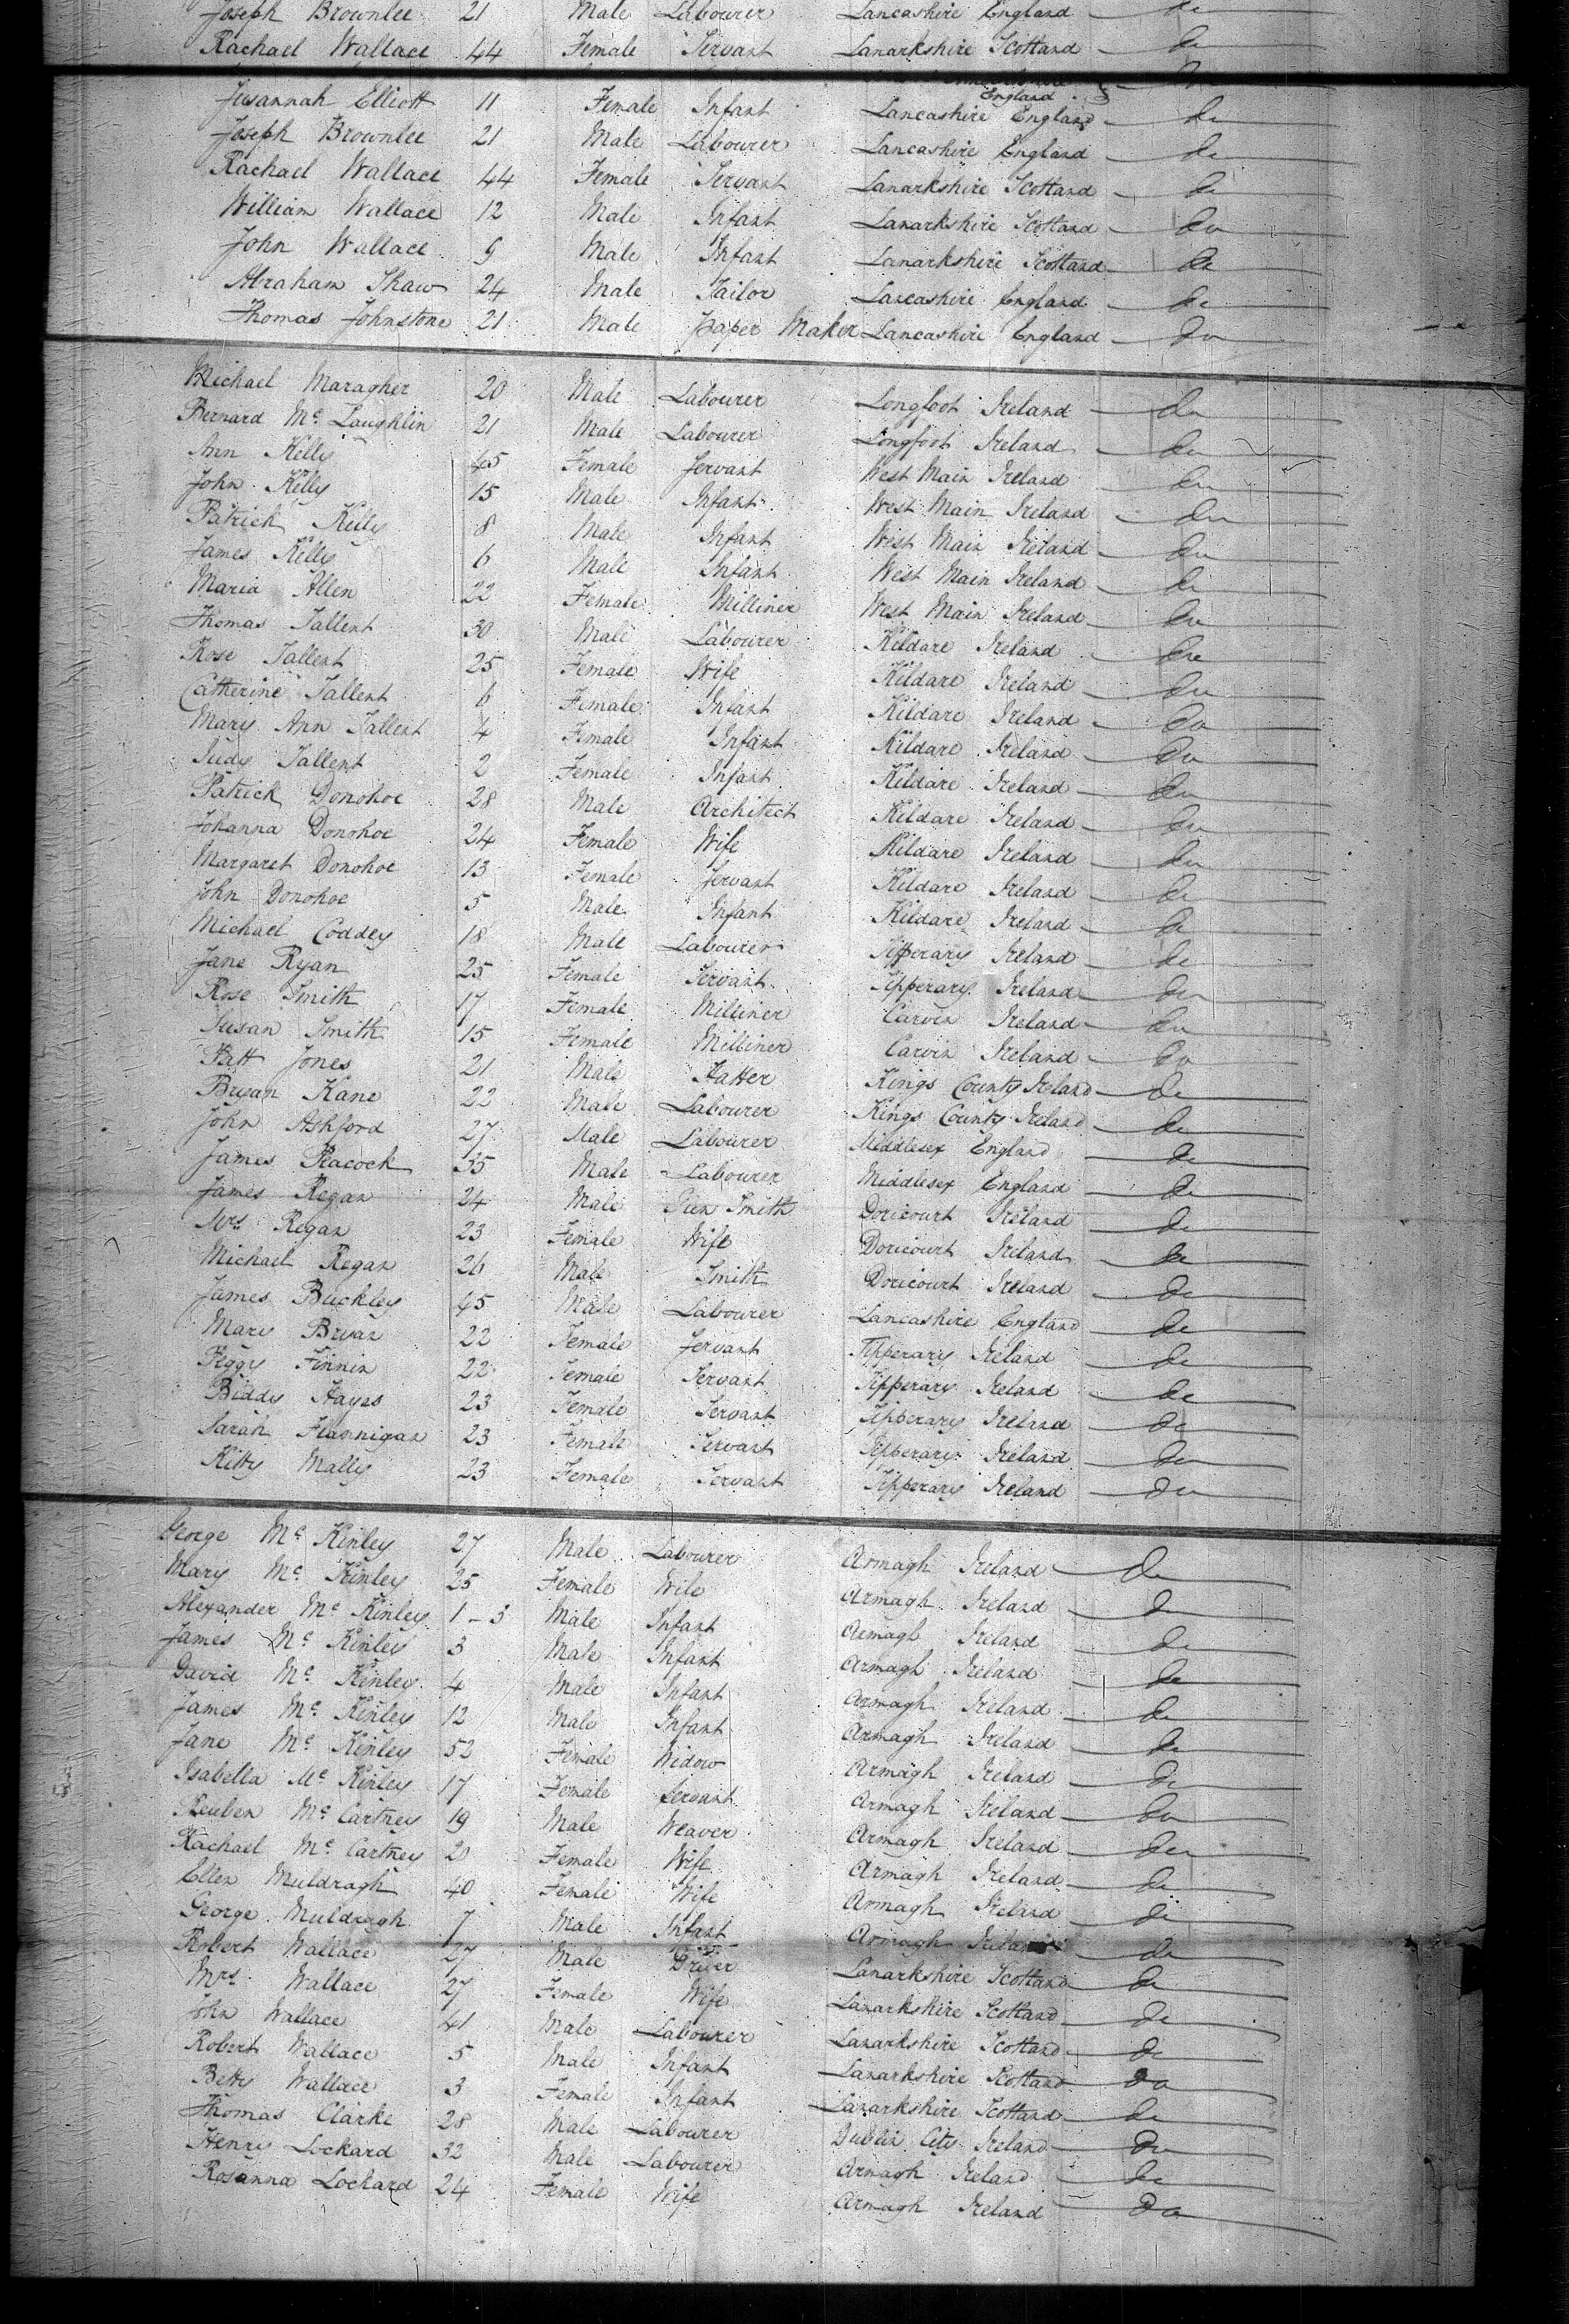 Joseph Brownlee 21 Male Labourer Lancashire England do
Rachael Wallace 44 Female Servant Lanarkshire Scotland do
England
Susannah Elliott 11 Female Infant Lancashire England do
Joseph Brownlee 21 Male Labourer Lancashire England do
Rachael Wallace 44 Female Servant Lanarkshire Scotland do
William Wallace 12 Male Infant Lanarkshire Scotland do
John Wallace 9 Male Infant Lanarkshire Scotland do
Abraham Shaw 24 Male Tailor Lancashire England do
Thomas Johnstone 21 Male Paper Maker Lancashire England do
Michael Maragher 20 Male Labourer Longfoot Ireland do
Bernard Mc Laughlin 21 Male Labourer Longfoot Ireland do
Ann Kelly 45 Female Servant West Main Ireland do
John Kelly 15 Male Infant West Main Ireland do
Patrick Kelly 8 Male Infant West Main Ireland do
James Kelly 6 Male Infant West Main Ireland do
Maria Allen 22 Female Milliner West Main Ireland do
Thomas Tallent 30 Male Labourer Kildare Ireland do
Rose Tallent 25 Female Wife Kildare Ireland do
Catherine Tallent 6 Female Infant Kildare Ireland do
Mary Ann Tallent 4 Female Infant Kildare Ireland do
Judy Tallent 2 Female Infant Kildare Ireland do
Patrick Donohoe 28 Male Architect Kildare Ireland do
Johanna Donohoe 24 Female Wife Kildare Ireland do
Margaret Donohoe 13 Female Servant Kildare Ireland do
John Donohoe 5 Male Infant Kildare Ireland do
Michael Coddey 18 Male Labourer Tipperary Ireland do
Jane Ryan 25 Female Servant Tipperary Ireland do
Rose Smith 17 Female Milliner Carvin Ireland do
Susan Smith 15 Female Milliner Carvin Ireland do
Patt Jones 21 Male Hatter Kings County Ireland do
Bryan Kane 22 Male Labourer Kings County Ireland do
John Ashford 27 Male Labourer Middlesex England do
James Peacock 35 Male Labourer Middlesex England do
James Regan 24 Male Smith Doricourt Ireland do
Mrs Regan 23 Female Wife Doricourt Ireland do
Michael Regan 26 Male Smith Doricourt Ireland do
James Buckley 45 Male Labourer Lancashire England do
Mary Bryan 22 Female Servant Tipperary Ireland do
Peggy Finnin 22 Female Servant Tipperary Ireland do
Biddy Hayes 23 Female Servant Tipperary Ireland do
Sarah Flannigan 23 Female Servant Tipperary Ireland do
Kitty Mally 23 Female Servant Tipperary Ireland do
George Mc Kinley 27 Male Labourer Armagh Ireland do
Mary Mc Kinley 25 Female Wife Armagh Ireland do
Alexander Mc Kinley 1-3 Male Infant Armagh Ireland do
James Mc Kinley 3 Male Infant Armagh Ireland do
David Mc Kinley 4 Male Infant Armagh Ireland do
James Mc Kinley 12 Male Infant Armagh Ireland do
Jane Mc Kinley 52 Female Widow Armagh Ireland do
Isabella Mc Kinley 17 Female Servant Armagh Ireland do
Reuben Mc Cartney 19 Male Weaver Armagh Ireland do
Rachael Mc Cartney 20 Female Wife Armagh Ireland do
Ellen Muldragh 40 Female Wife Armagh Ireland do
George Muldragh 7 Male Infant Armagh Ireland do
Robert Wallace 27 Male Driver Lanarkshire Scotland do
Mrs Wallace 27 Female Wife Lanarkshire Scotland do
John Wallace 41 Male Labourer Lanarkshire Scotland do
Robert Wallace 5 Male Infant Lanarkshire Scotland do
Betty Wallace 3 Female Infant Lanarkshire Scotland do
Thomas Clarke 28 Male Labourer Dublin City Ireland do
Henry Lockard 32 Male Labourer Armagh Ireland do
Rosanna Lockard 24 Female Wife Armagh Ireland do